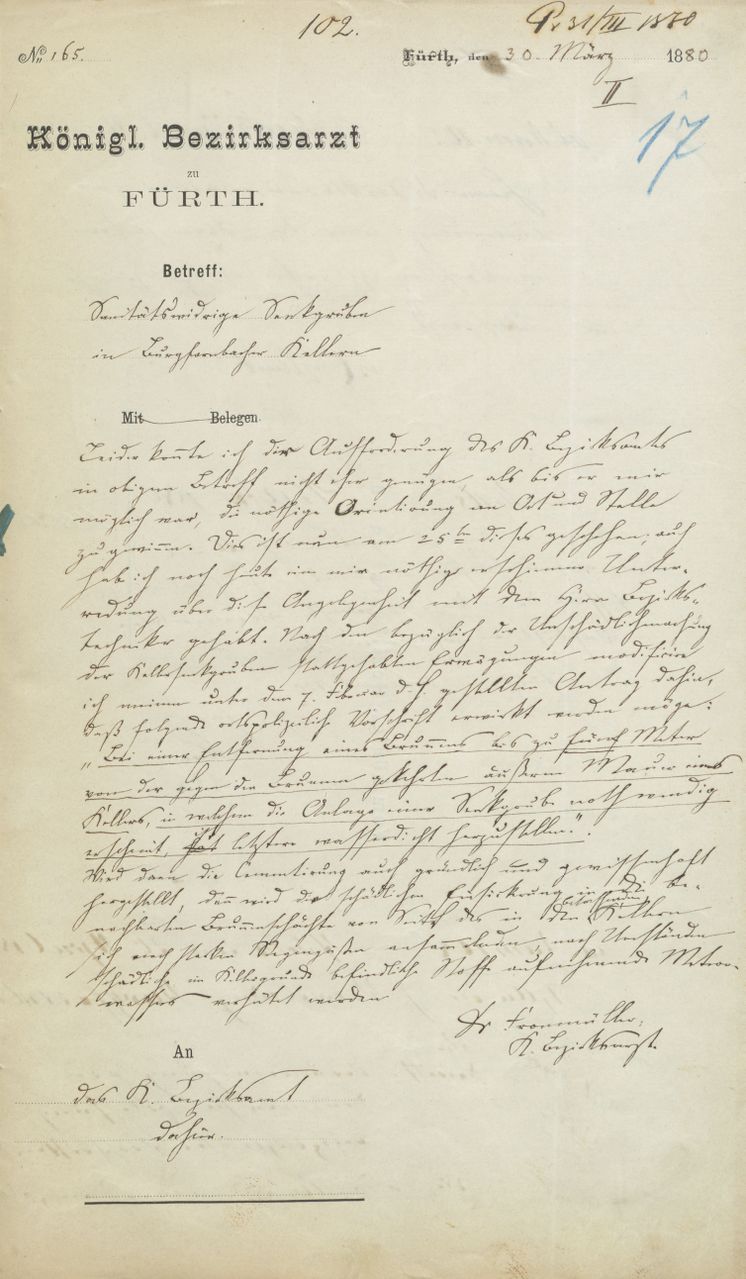 102.
Pr 31/III 1880
No 165.
Fürth, den 30. März 1880
II
17
Königl. Bezirksarzt
zu
FÜRTH.
Betreff:
Sanitätswidrige Senkgruben
in Burgfarnbacher Kellern
Mit Belegen
Leider konnte ich der Aufforderung des K. Bezirksamtes
in obigem Betreff nicht eher genügen, als bis es mir
möglich war, die nöthige Orientirung an Ort und Stelle
zu gewinnen. Dies ist nun am 25ten dieses geschehen; auch
hab ich noch heute eine mir nöthig erschienene Unter-
redung über diese Angelegenheit mit dem Herrn Bezirks-
techniker gehabt. Nach den bezüglich der Unschädlichmachung
der Kellersenkgruben stattgehabten Erwägungen modificire
ich meinen unter dem 7. Februar d. J. gestellten Antrag dahin,
daß folgende ortspolizeiliche Vorschrift erwirkt werden möge:
„Bei einer Entfernung eines Brunnens bis zu fünf Meter
von der gegen den Brunnen gekehrten äußeren Mauer eines
Kellers, in welchem die Anlage einer Senkgrube nothwendig
erscheint, ist letztere wasserdicht herzustellen."
Wird dann die Cementirung auch gründlich und gewissenhaft
hergestellt, dann wird der schädlichen Einsickerung in die be-
nachbarten Brunnenschächte von Seite des in den betreffenden Kellern
sich nach starken Regengüssen ansammelnden, nach Umständen
schädliche im Kellergrunde befindliche Stoffe aufnehmenden Meteor-
wassers vorgebeugt werden
Dr Fronmüller,
K. Bezirksarzt.
An
das K. Bezirksamt
dahier.